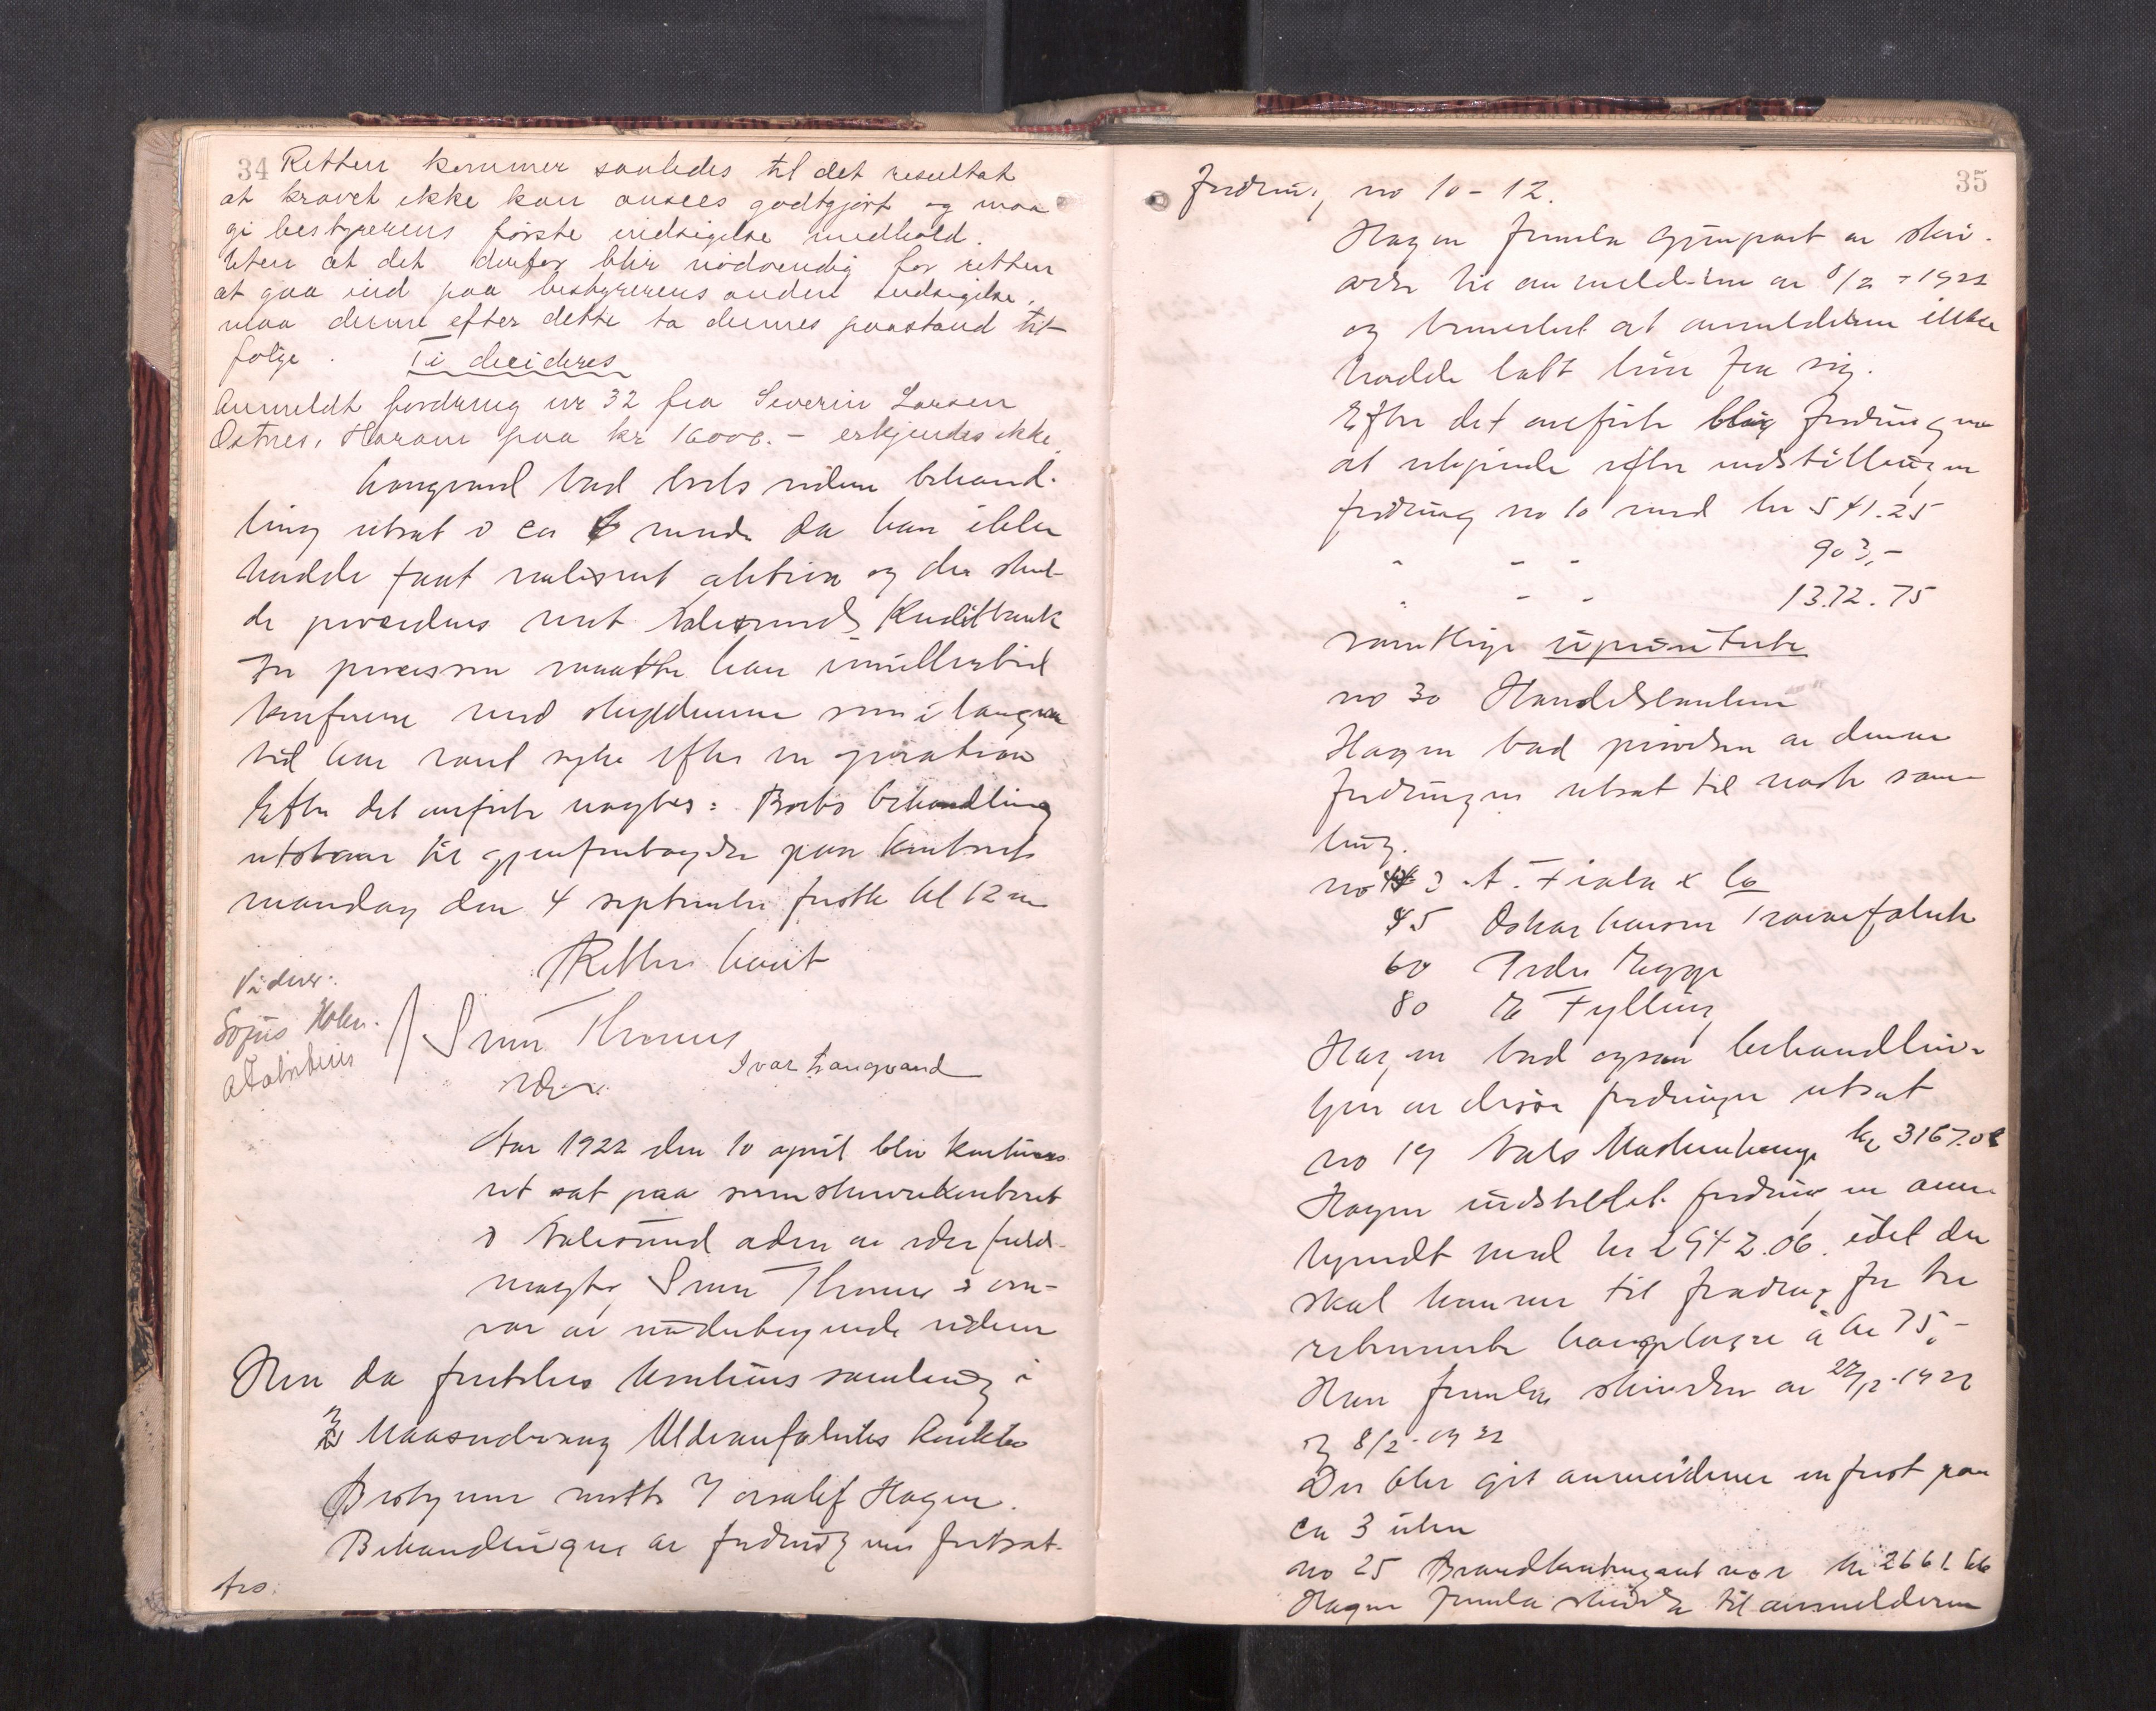 34 Retten kommer saaledes til det resultat
at kravet ikke kan ansees godtgjort og maa
gi bestyrerens første indsigelse medhold.
Uten at det derfor blir nødvendig for retten
at gaa ind paa bestyrerens anden indsigelse,
maa denne efter dette ta dennes paastand til
følge. Ti decideres
Anmeldt fordring nr 32 fra Severin Larsen
Østnes, Haram paa kr 16000.- erkjendes ikke
Langvand bad boets videre behand-
ling utsat i ca mnd. da han ikke
hadde faat realisert aktiva og der skul-
de procederes mot Aalesunds Kreditbank
For processen maatte han imidlertid
konferere med skyldneren som i langere
tid har været syke efter en operation
Efter det anførte vedtoges: Boets behandling
utstaar til gjenforetagelse paa kontoret
mandag den 4 september førstk kl 12 m
Retten hævet
Vidner:
Sofus Holm.
Sven Thomes
Ivar Langvand
Aar 1922 den 10 april blev konkurs
ret sat paa sorenskriverkontoret
i Aalesund adm av edsv fuld-
mægtig Sven Thomes i over-
vær av undertegnede vidner
Hvor da foretokes konkurssamling i
Maasudvang Uldvarefabriks konkbo
Bestyrer møtte Overretssakf Hagen.
Behandlingen av fordringene fortsat.
35
Fordring no 10-12.
Hagen fremla gjenpart av skri-
velse til anmelderne av 8/2 - 1922
og bemerket at anmelderne ikke
hadde latt høre fra sig.
Efter det anførte blev fordringene
at erkjende efter indstillingen
fordring no 10 med kr 541.25
" - - 903,-
" - - 1372.75
samtlige uprioriterte
no 30 Handelsbanken
Hagen bad prøvelsen av denne
fordringen utsat til næste sam-
ling.
no 43 A. Fiala & Co
45 Oskar Hansen Trævarefabrik
60 Peder Rygge
80 E Fylling
Hagen bad ogsaa behandlin-
gen av disse fordringer utsat
no 19 Aals Maskinforretn. kr 3167.06
Hagen indstillet fordringen aner-
kjendt med kr 2942.06. idet der
skal komme til fradrag for tre
returnerte hængelagre à kr 75,-
Han fremla skrivelser av 22/12-1921
og 8/2-1922
Der blev git anmelderen en frist paa
ca 3 uker
no 25 Brandkontingent nor kr 2661.66
Hagen fremla skrivelse til anmelderen